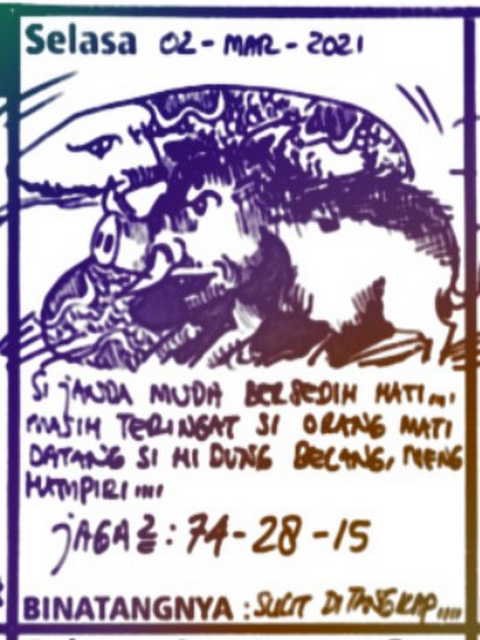 Selasa 02-MAR-2021
SI JANDA MUDA BERSEDIH HATI....
MASIH TERINGAT SI ORANG MATI
DATANG SI HIDUNG BELANG, MENG
HAMPIRI....
JAGA2: 74-28-15
BINATANGNYA : SULIT DITANGKAP....